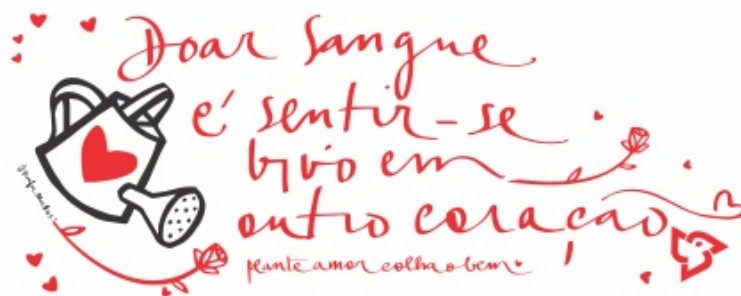 Doar Sangue
é sentir-se
vivo em
outro coração
plante amor colha o bem